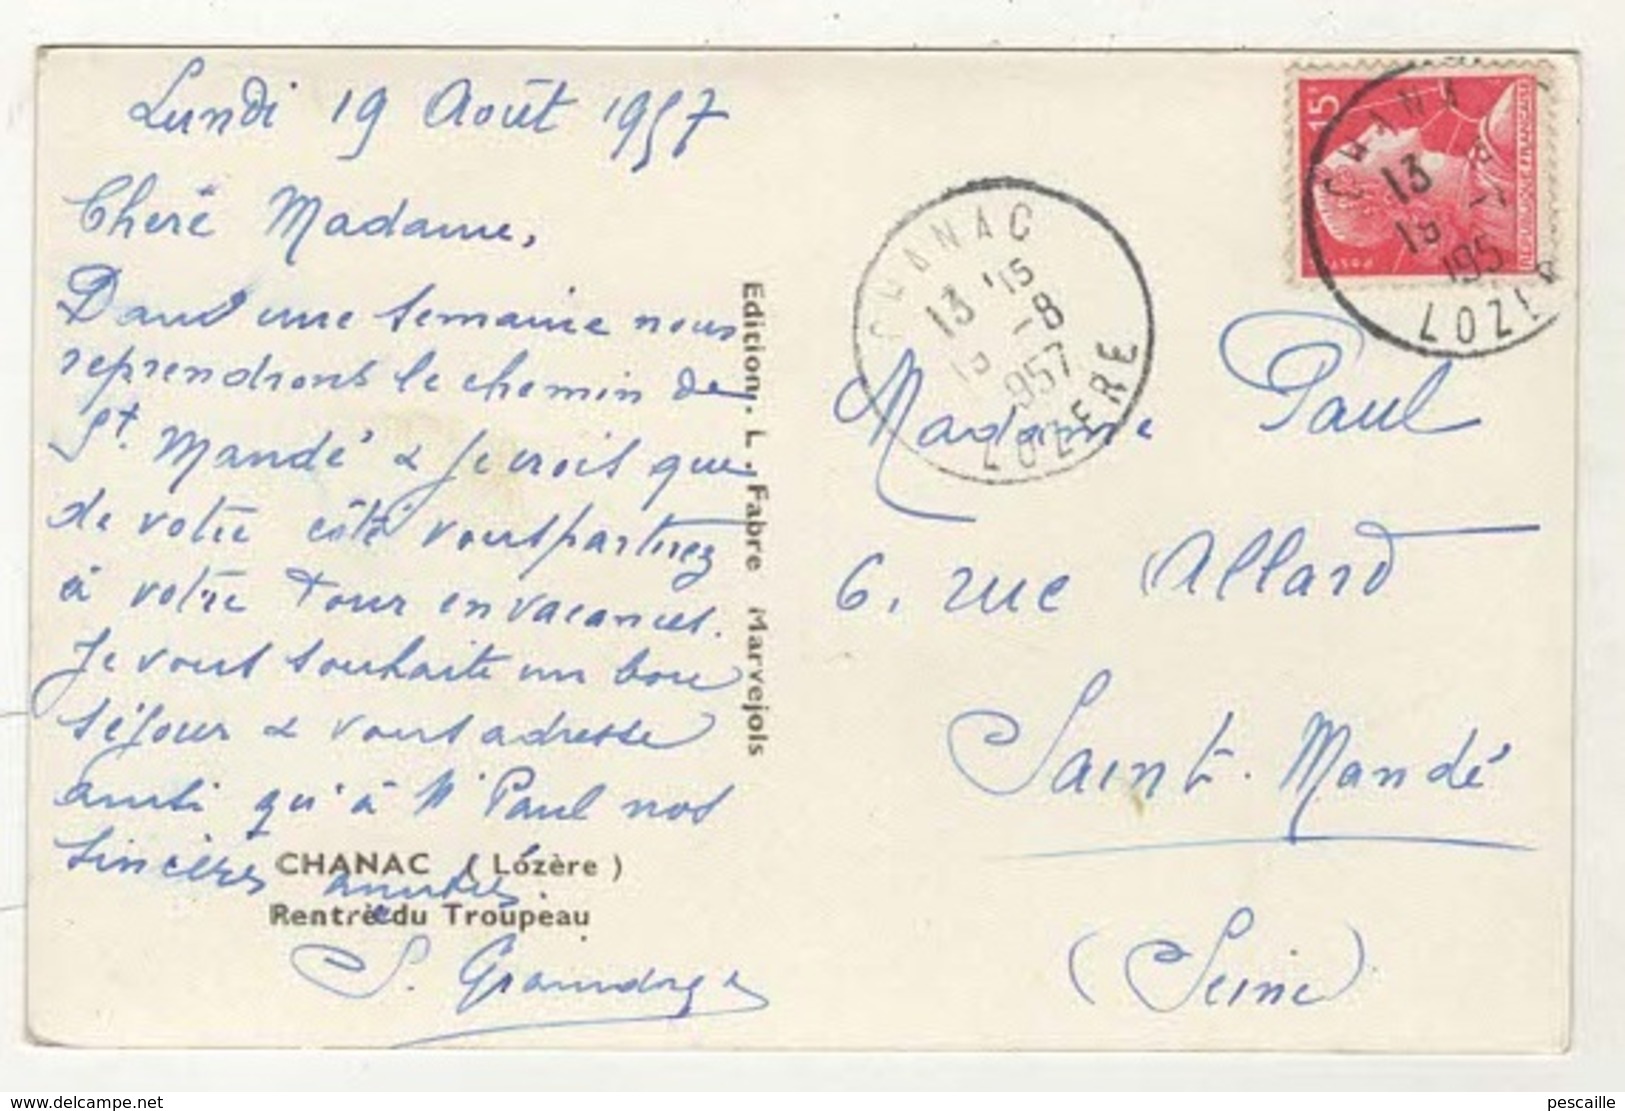 Lundi 19 Août 1957
Cheré Madame,
Dans une semaine nous
reprendrons le chemin de
St. Mandé & je crois que
de votre côté vous partirez
à votre tour en vacances.
Je vous souhaite un bon
séjour & vous adresse
ainsi qu'à Mr Paul nos
sincères amitiés.
CHANAC ( Lózère )
Rentrèe du Troupeau
S.
Edition. L. Fabre Marvejols
CHANAC
13 15
-8
957
LOZERE
15F
POSTES
REPUBLIQUE FRANÇAISE
CHANA
13
19
195
LOZ
Madame Paul
6, rue Allard
Saint-Mandé
(Seine)
www.delcampe.net
pescaille